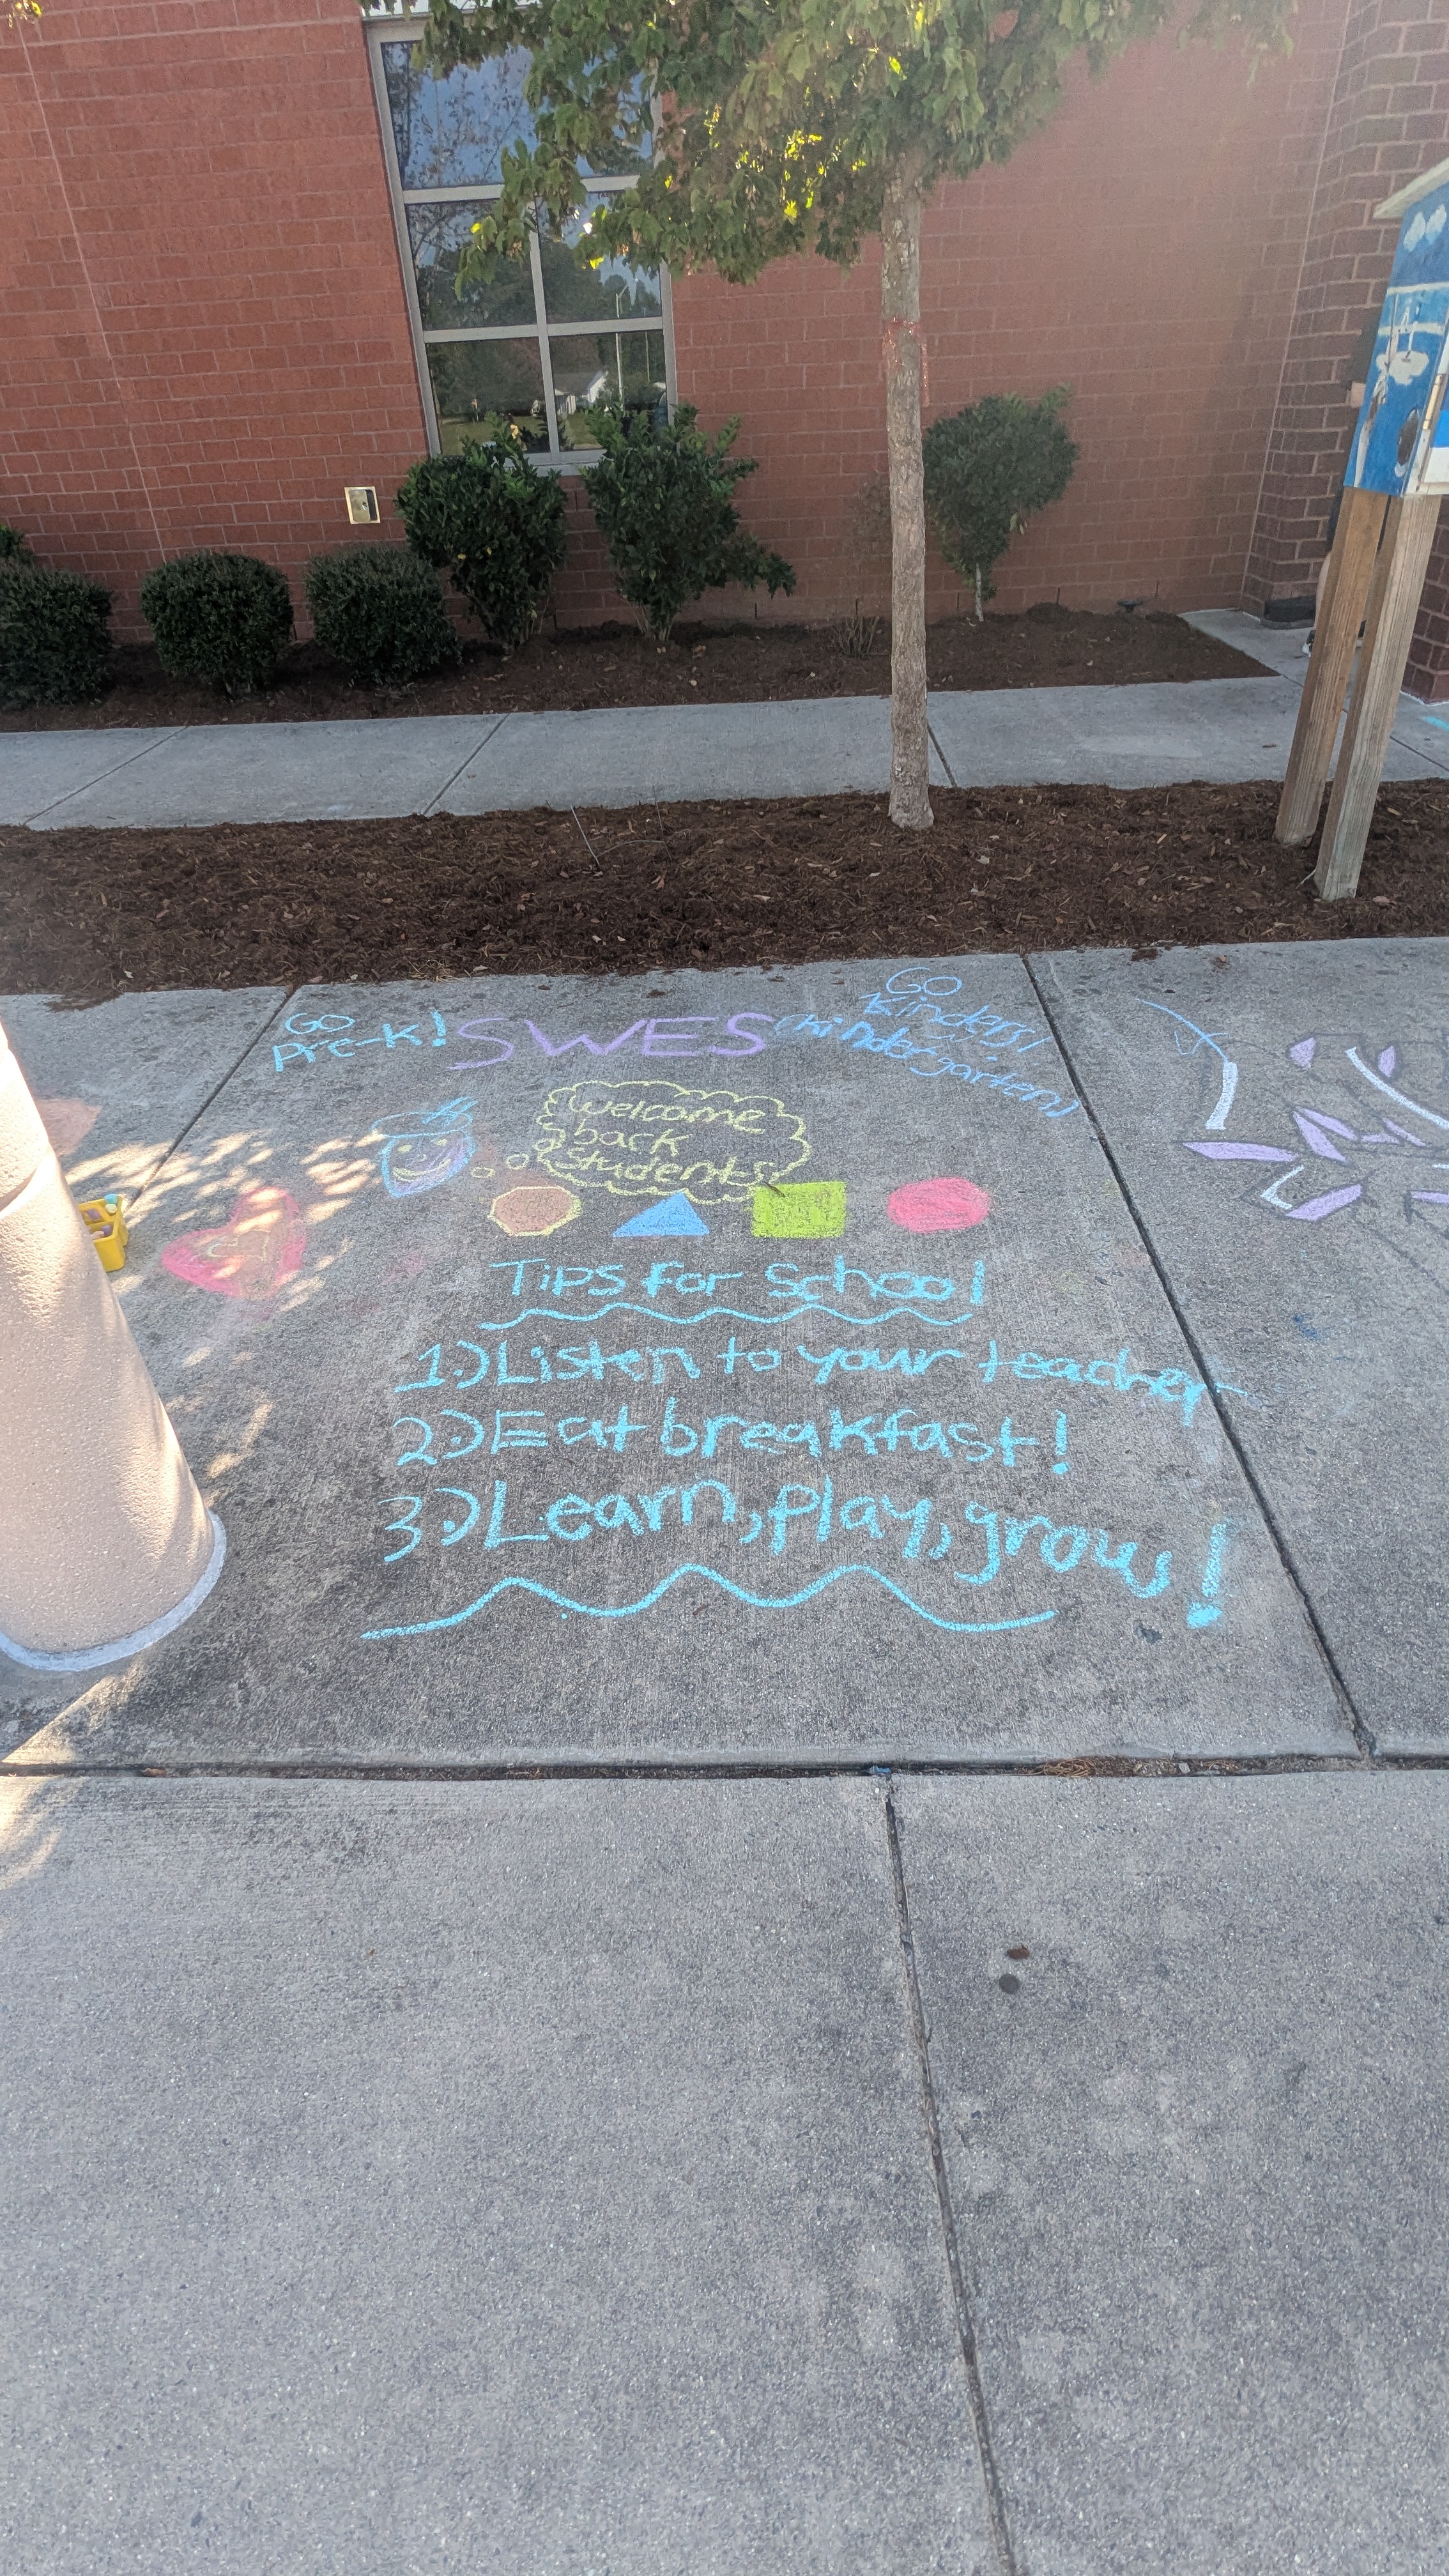 Go
Pre-K!
SWES
Go
Kinders!
(Kindergarten)
Welcome
back
Students!
Tips for School
1.) Listen to your teacher
2.) Eat breakfast!
3.) Learn, play, grow!